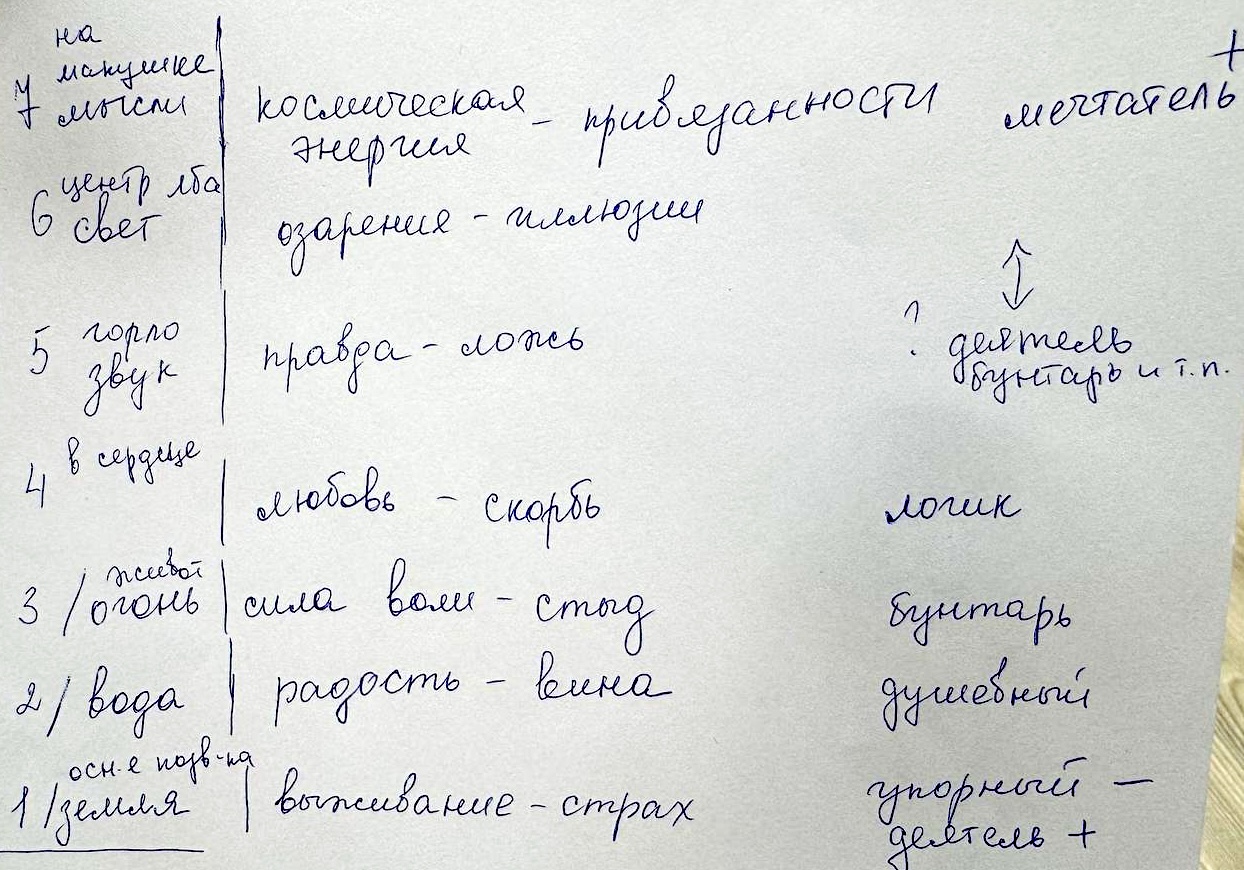 на
макушке
7 мысли космическая энергия - привязанности мечтатель +
центр лба
6 свет озарения - иллюзии
↕
5 горло
звук правда - ложь ? деятель
бунтарь и т.п.
4 в сердце
любовь - скорбь логик
живот
3 / огонь сила воли - стыд бунтарь
2 / вода радость - вина душевный
осн-е позв-ка
1 / земля выживание - страх упорный —
деятель +